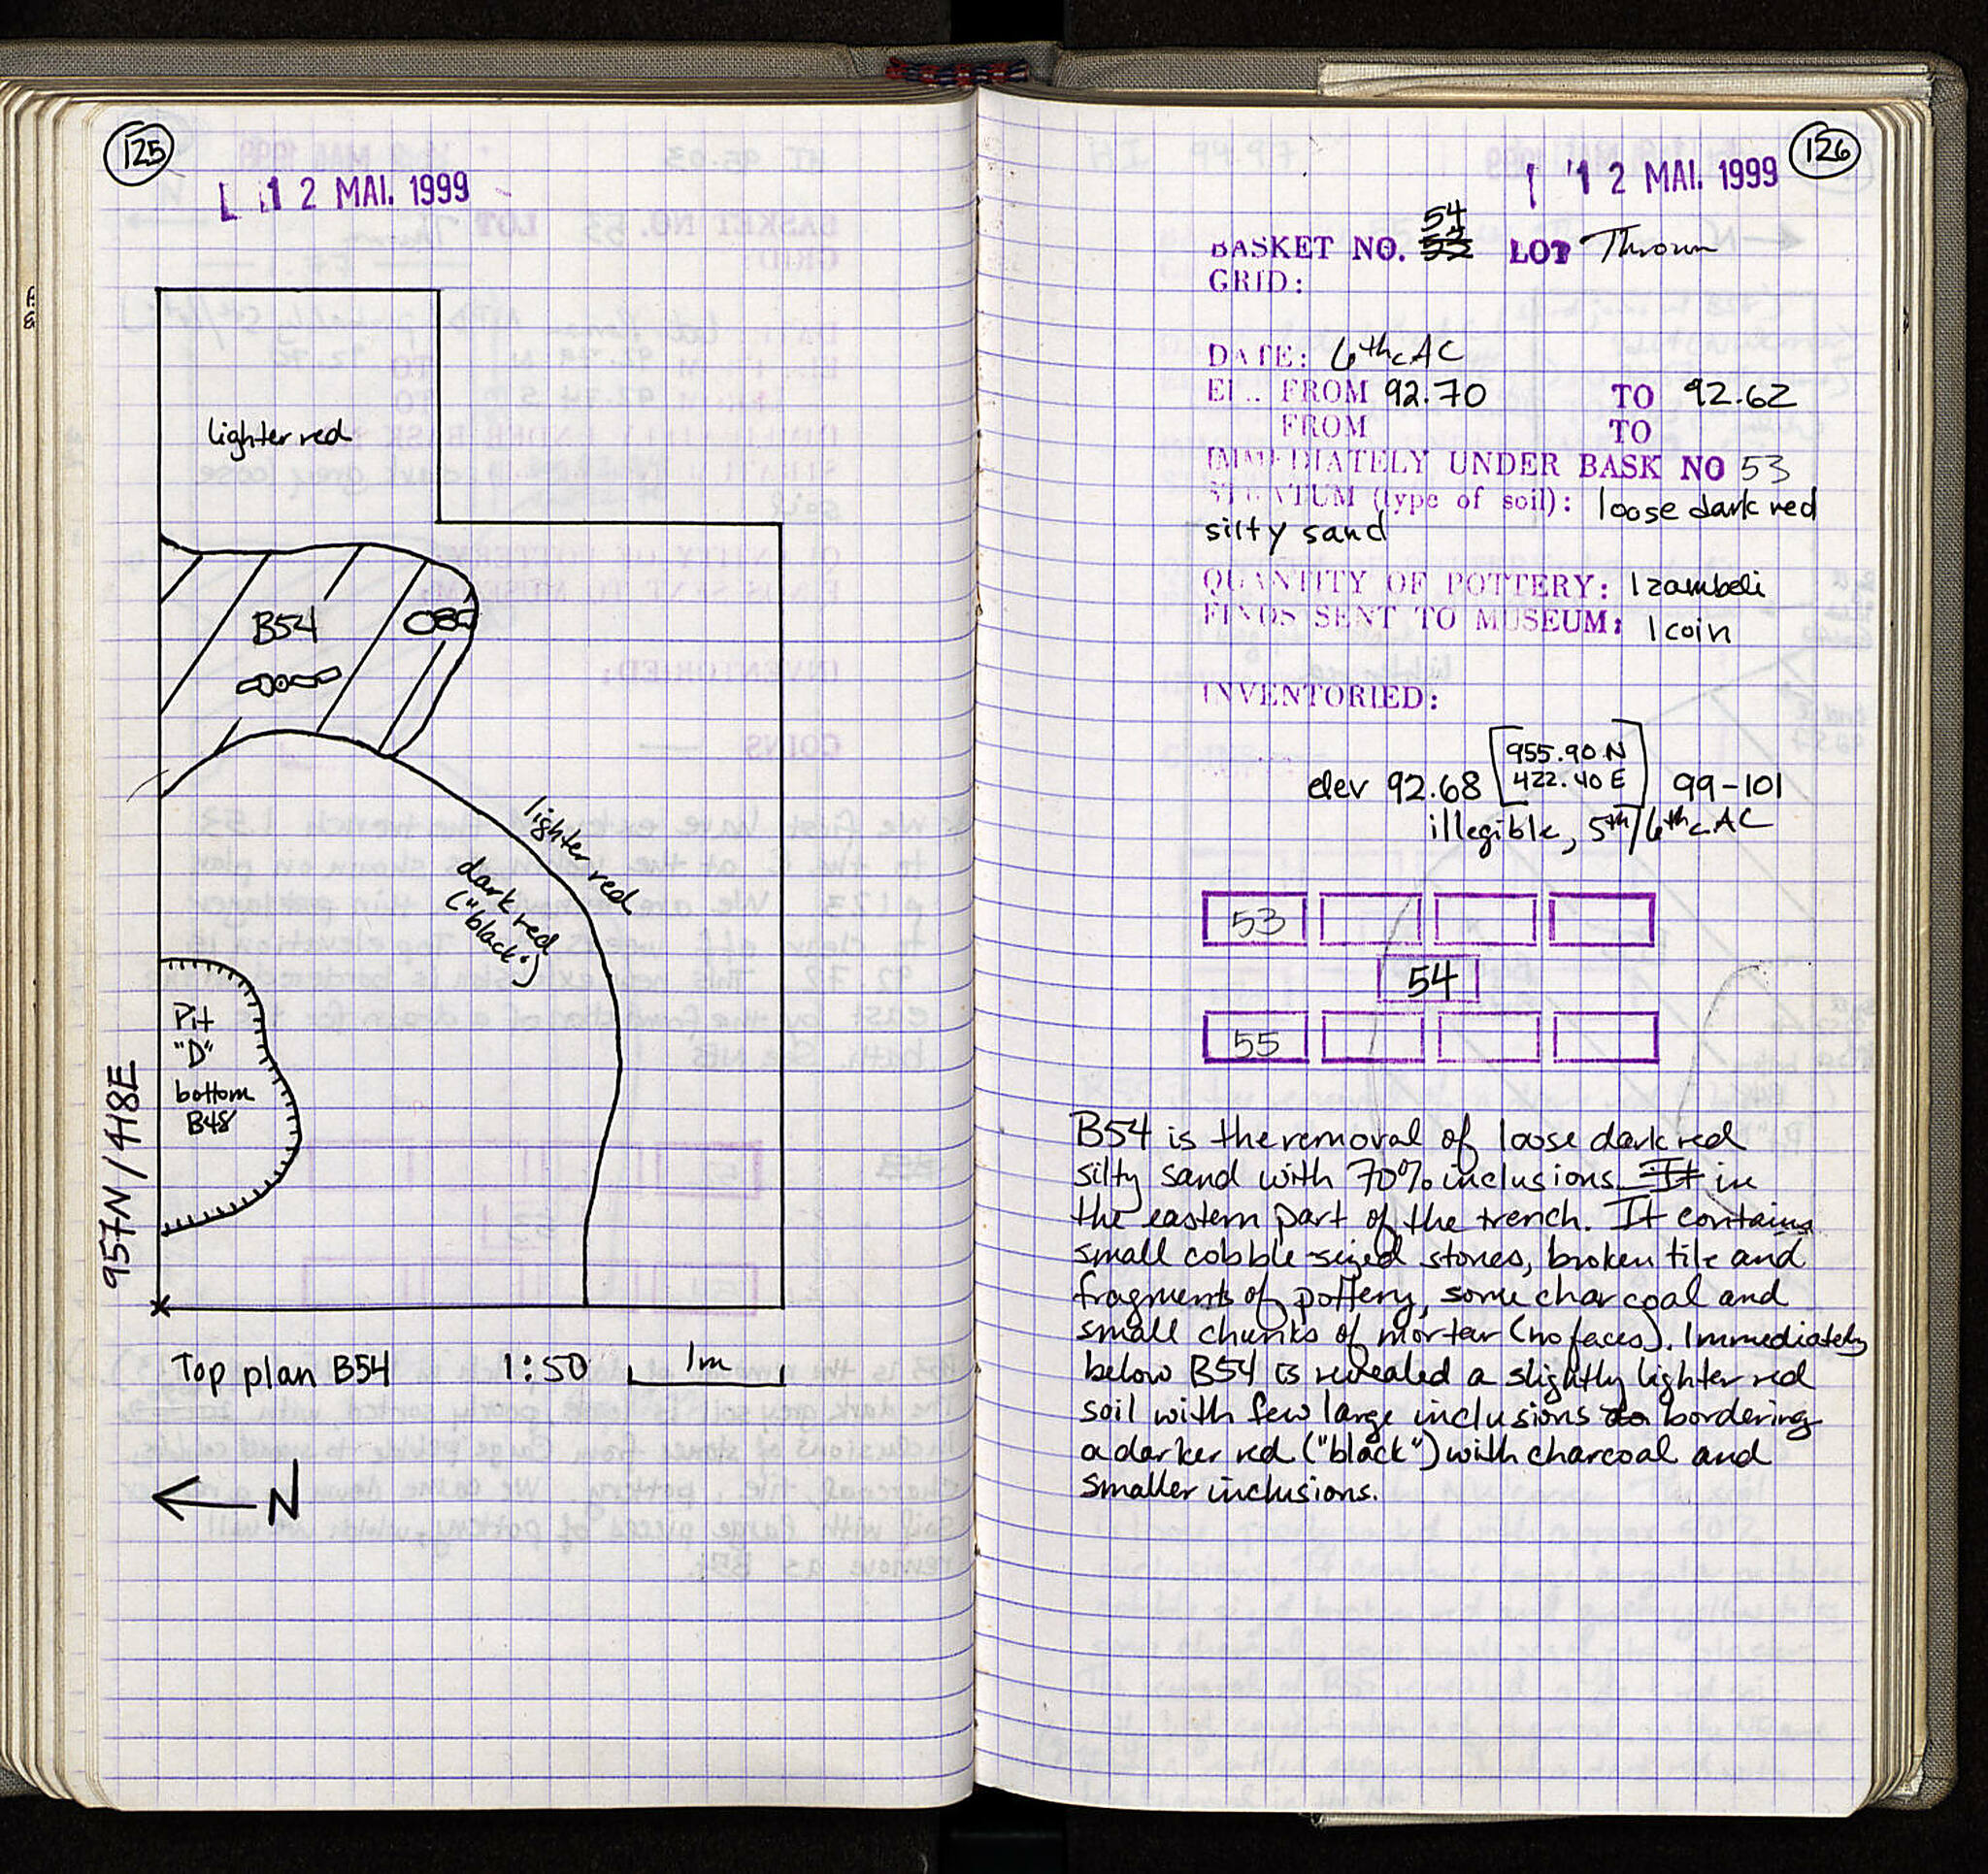 125
12 MAI. 1999
lighter red
B54
lighter red
dark red
("black")
Pit
"D"
bottom
B48
957N/418E
Top plan B54 1:50 1m
N
126
12 MAI. 1999
54
BASKET NO. 53 LOT Thrown
GRID:
DATE: 6th c AC
EL. FROM 92.70 TO 92.62
FROM TO
IMMEDIATELY UNDER BASK NO 53
STRATUM (type of soil): loose dark red
silty sand
QUANTITY OF POTTERY: 1 zambeli
FINDS SENT TO MUSEUM: 1 coin
INVENTORIED:
elev 92.68 [955.90 N
422.40 E] 99-101
illegible, 5th/6th c AC
53
54
55
B54 is the removal of loose dark red
silty sand with 70% inclusions It in
the eastern part of the trench. It contains
small cobble sized stones, broken tile and
fragments of pottery, some charcoal and
small chunks of mortar (no faces). Immediately
below B54 is revealed a slightly lighter red
soil with few large inclusions bordering
a darker red ("black") with charcoal and
smaller inclusions.